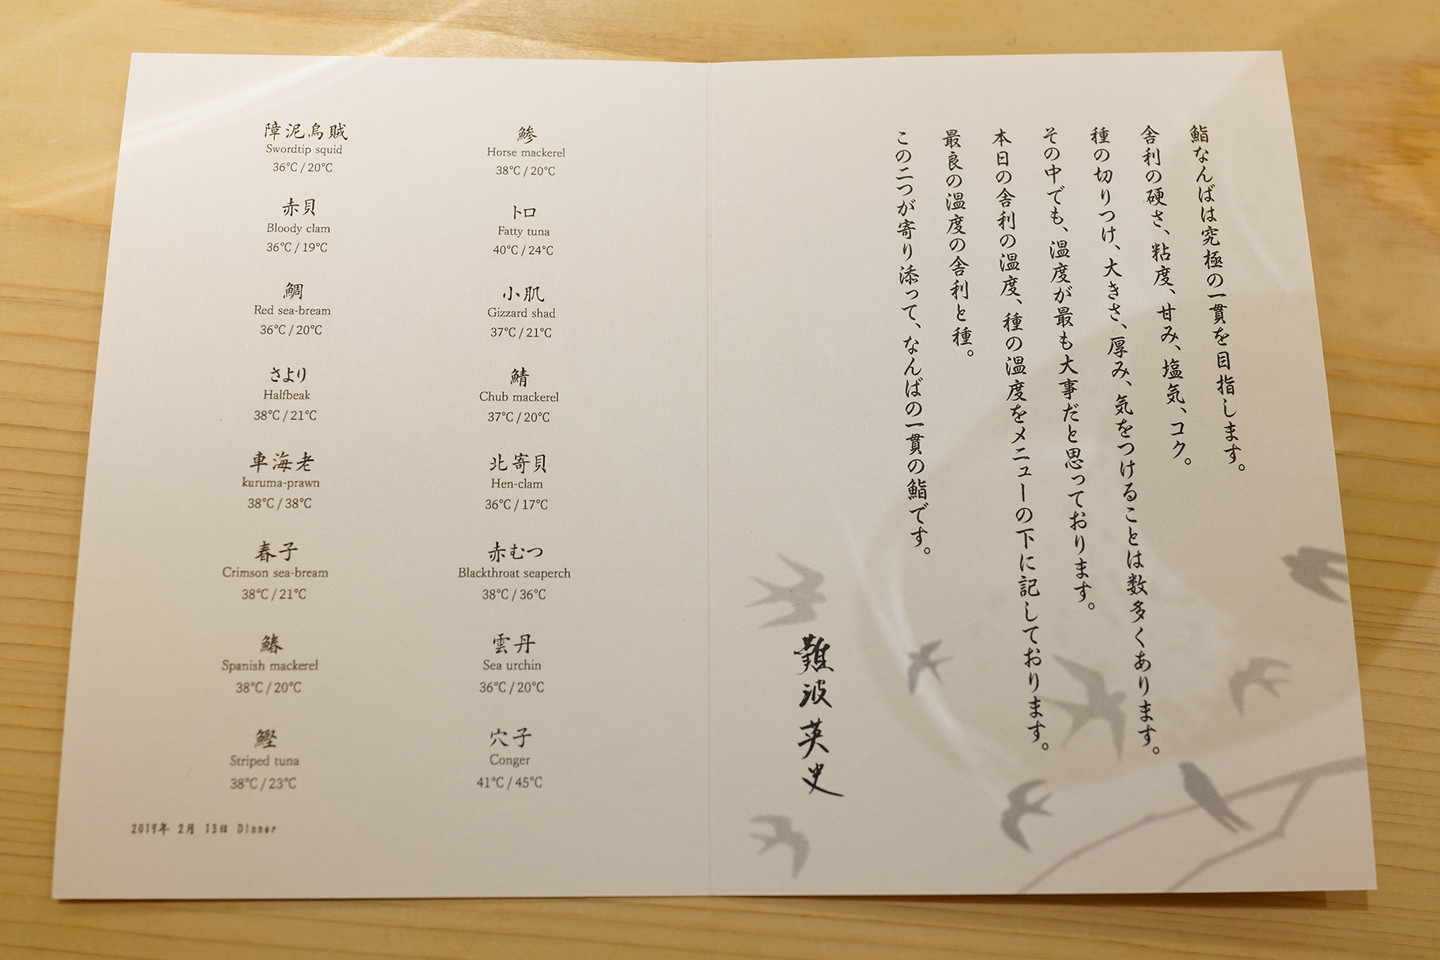 障泥烏賊
Swordtip squid
36℃ / 20℃
赤貝
Bloody clam
36℃ / 19℃
鯛
Red sea-bream
36℃ / 20℃
さより
Halfbeak
38℃ / 21℃
車海老
kuruma-prawn
38℃ / 38℃
春子
Crimson sea-bream
38℃ / 21℃
鰆
Spanish mackerel
38℃ / 20℃
鰹
Striped tuna
38℃ / 23℃
鯵
Horse mackerel
38℃ / 20℃
トロ
Fatty tuna
40℃ / 24℃
小肌
Gizzard shad
37℃ / 21℃
鯖
Chub mackerel
37℃ / 20℃
北寄貝
Hen-clam
36℃ / 17℃
赤むつ
Blackthroat seaperch
38℃ / 36℃
雲丹
Sea urchin
36℃ / 20℃
穴子
Conger
41℃ / 45℃
2019年 2月 13日 Dinner
鮨なんばは究極の一貫を目指します。
舎利の硬さ、粘度、甘み、塩気、コク。
種の切りつけ、大きさ、厚み、気をつけることは数多くあります。
その中でも、温度が最も大事だと思っております。
本日の舎利の温度、種の温度をメニューの下に記しております。
最良の温度の舎利と種。
この二つが寄り添って、なんばの一貫の鮨です。
難波英史